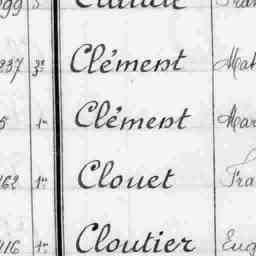 837 3e Clément Mat
5 1re Clément Mar
162 1re Clouet Fra
416 1re Cloutier Eug